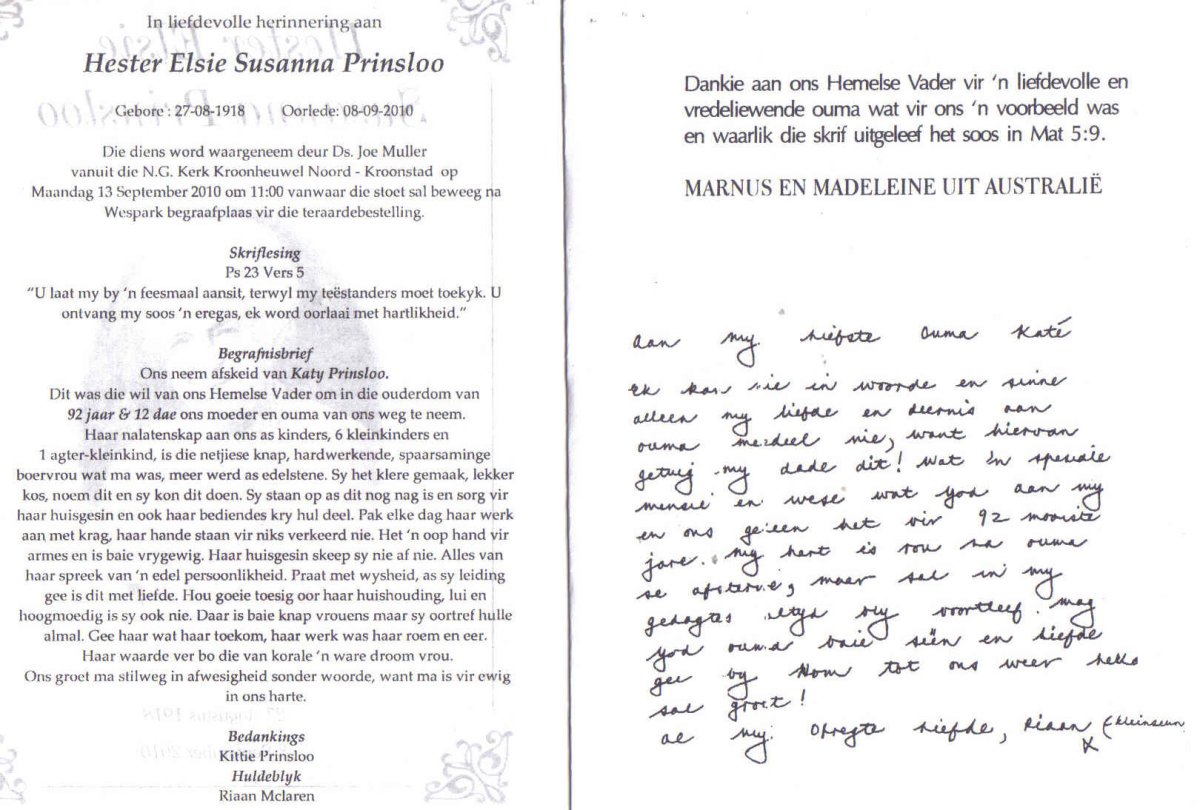 In liefdevolle herinnering aan
Hester Elsie Susanna Prinsloo
Gebore : 27-08-1918 Oorlede: 08-09-2010
Die diens word waargeneem deur Ds. Joe Muller
vanuit die N.G. Kerk Kroonheuwel Noord - Kroonstad op
Maandag 13 September 2010 om 11:00 vanwaar die stoet sal beweeg na
Wespark begraafplaas vir die teraardebestelling.
Skriflesing
Ps 23 Vers 5
“U laat my by ‘n feesmaal aansit, terwyl my teëstanders moet toekyk. U
ontvang my soos ‘n eregas, ek word oorlaai met hartlikheid.”
Begrafnisbrief
Ons neem afskeid van Katy Prinsloo.
Dit was die wil van ons Hemelse Vader om in die ouderdom van
92 jaar & 12 dae ons moeder en ouma van ons weg te neem.
Haar nalatenskap aan ons as kinders, 6 kleinkinders en
1 agter-kleinkind, is die netjiese knap, hardwerkende, spaarsaminge
boervrou wat ma was, meer werd as edelstene. Sy het klere gemaak, lekker
kos, noem dit en sy kon dit doen. Sy staan op as dit nog nag is en sorg vir
haar huisgesin en ook haar bediendes kry hul deel. Pak elke dag haar werk
aan met krag, haar hande staan vir niks verkeerd nie. Het ‘n oop hand vir
armes en is baie vrygewig. Haar huisgesin skeep sy nie af nie. Alles van
haar spreek van ‘n edel persoonlikheid. Praat met wysheid, as sy leiding
gee is dit met liefde. Hou goeie toesig oor haar huishouding, lui en
hoogmoedig is sy ook nie. Daar is baie knap vrouens maar sy oortref hulle
almal. Gee haar wat haar toekom, haar werk was haar roem en eer.
Haar waarde ver bo die van korale ‘n ware droom vrou.
Ons groet ma stilweg in afwesigheid sonder woorde, want ma is vir ewig
in ons harte.
Bedankings
Kittie Prinsloo
Huldeblyk
Riaan Mclaren
Dankie aan ons Hemelse Vader vir ‘n liefdevolle en
vredeliewende ouma wat vir ons ‘n voorbeeld was
en waarlik die skrif uitgeleef het soos in Mat 5:9.
MARNUS EN MADELEINE UIT AUSTRALIË
Aan my liefste Ouma Katé
Ek kan nie in woorde en sinne
alleen my liefde en deernis aan
ouma meedeel nie, want hiervan
getuig my dade dit! Wat 'n spesiale
mens en wese wat God aan my
en ons geleen het vir 92 mooiste
jare. My hart is rou na ouma
se afsterwe, maar sal in my
gedagtes altyd bly voortleef. Mag
God ouma baie seën en liefde
gee by Hom tot ons weer hello
sal groet!
al my opregte liefde, Riaan (kleinseun
X